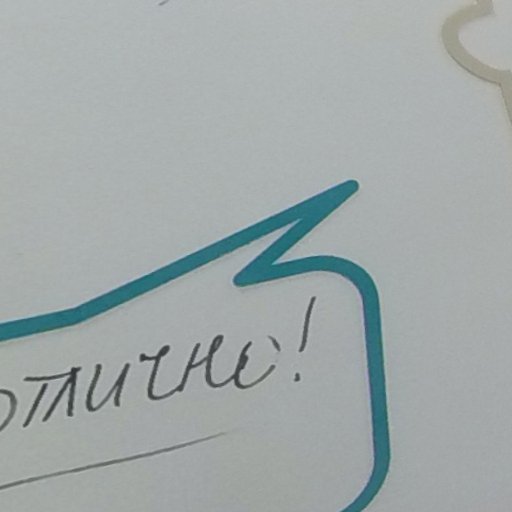 отлично!